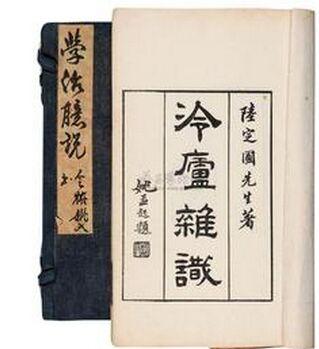 陸定圃先生著
冷廬雜識
姚孟起題
學治臆說